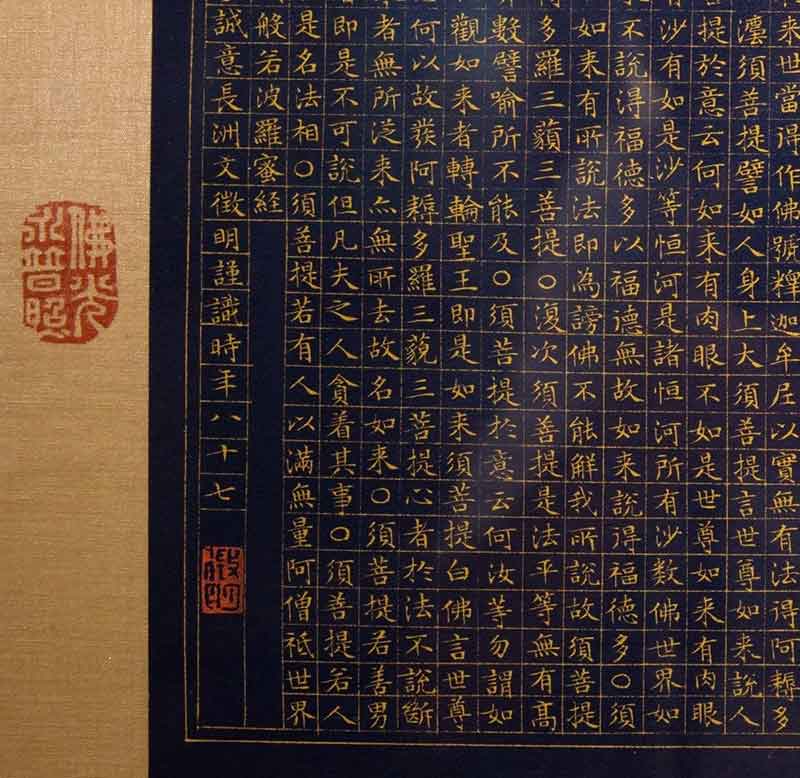 来世當得作佛號釋迦牟尼以實無有法得阿耨多
須菩提譬如人身上大須菩提言世尊如来說人
提於意云何如来有肉眼不如是世尊如来有肉眼
沙有如是沙等恒河是諸恒河所有沙數佛世界如
不說得福德多以福德無故如来說得福德多○須
如来有所說法即為謗佛不能解我所說故須菩提
多羅三藐三菩提○復次須菩提是法平等無有高
數譬喻所不能及○須菩提於意云何汝等勿謂如
觀如来者轉輪聖王即是如来須菩提白佛言世尊
何以故發阿耨多羅三藐三菩提心者於法不說斷
者無所泛来亦無所去故名如来○須菩提若善男
即是不可說但凡夫之人貪着其事○須菩提若人
是名法相○須菩提若有人以滿無量阿僧祇世界
般若波羅蜜經
誠意長洲文徵明謹識時年八十七
徵明
佛光
永普照